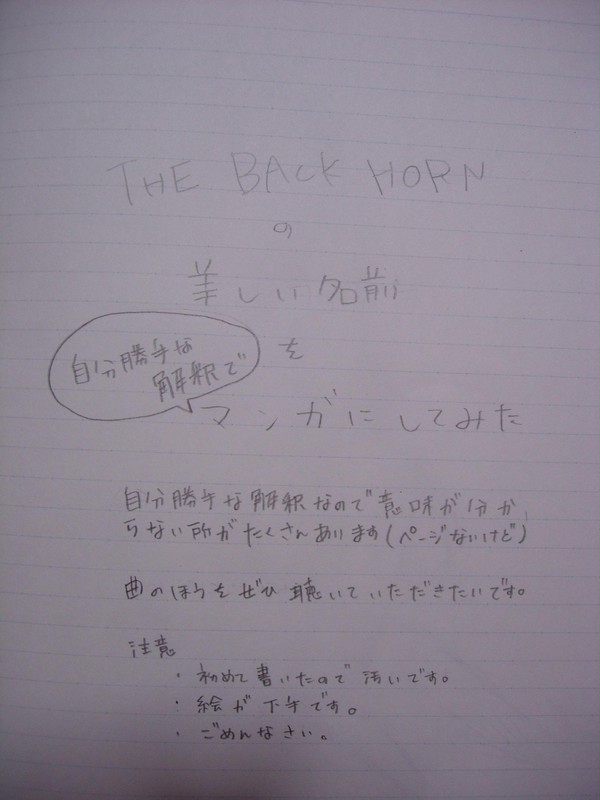 THE BACK HORN
の
美しい名前
を
自分勝手な
解釈で
マンガにしてみた
自分勝手な解釈なので意味が分か
らない所がたくさんあります(ページないけど)
曲のほうをぜひ聴いていただきたいです。
注意
・初めて書いたので汚いです。
・絵が下手です。
・ごめんなさい。